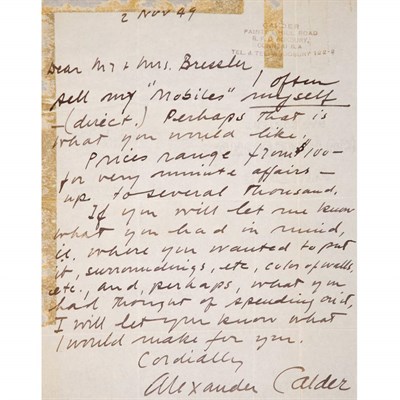 2 NOV 49
CALDER
PAINTER HILL ROAD
Dear Mr & Mrs. Bressler,
I often
sell my "Mobiles" myself
-(direct.) Perhaps that is
what you would like.
Prices range from $100-
for very minute affairs -
up to several thousand.
If you will let me know
what you had in mind,
ie. where you wanted to put
it, surroundings, etc, color of walls,
etc., and, perhaps, what you
had thought of spending on it,
I will let you know what
I would make for you.
Cordially
Alexander Calder